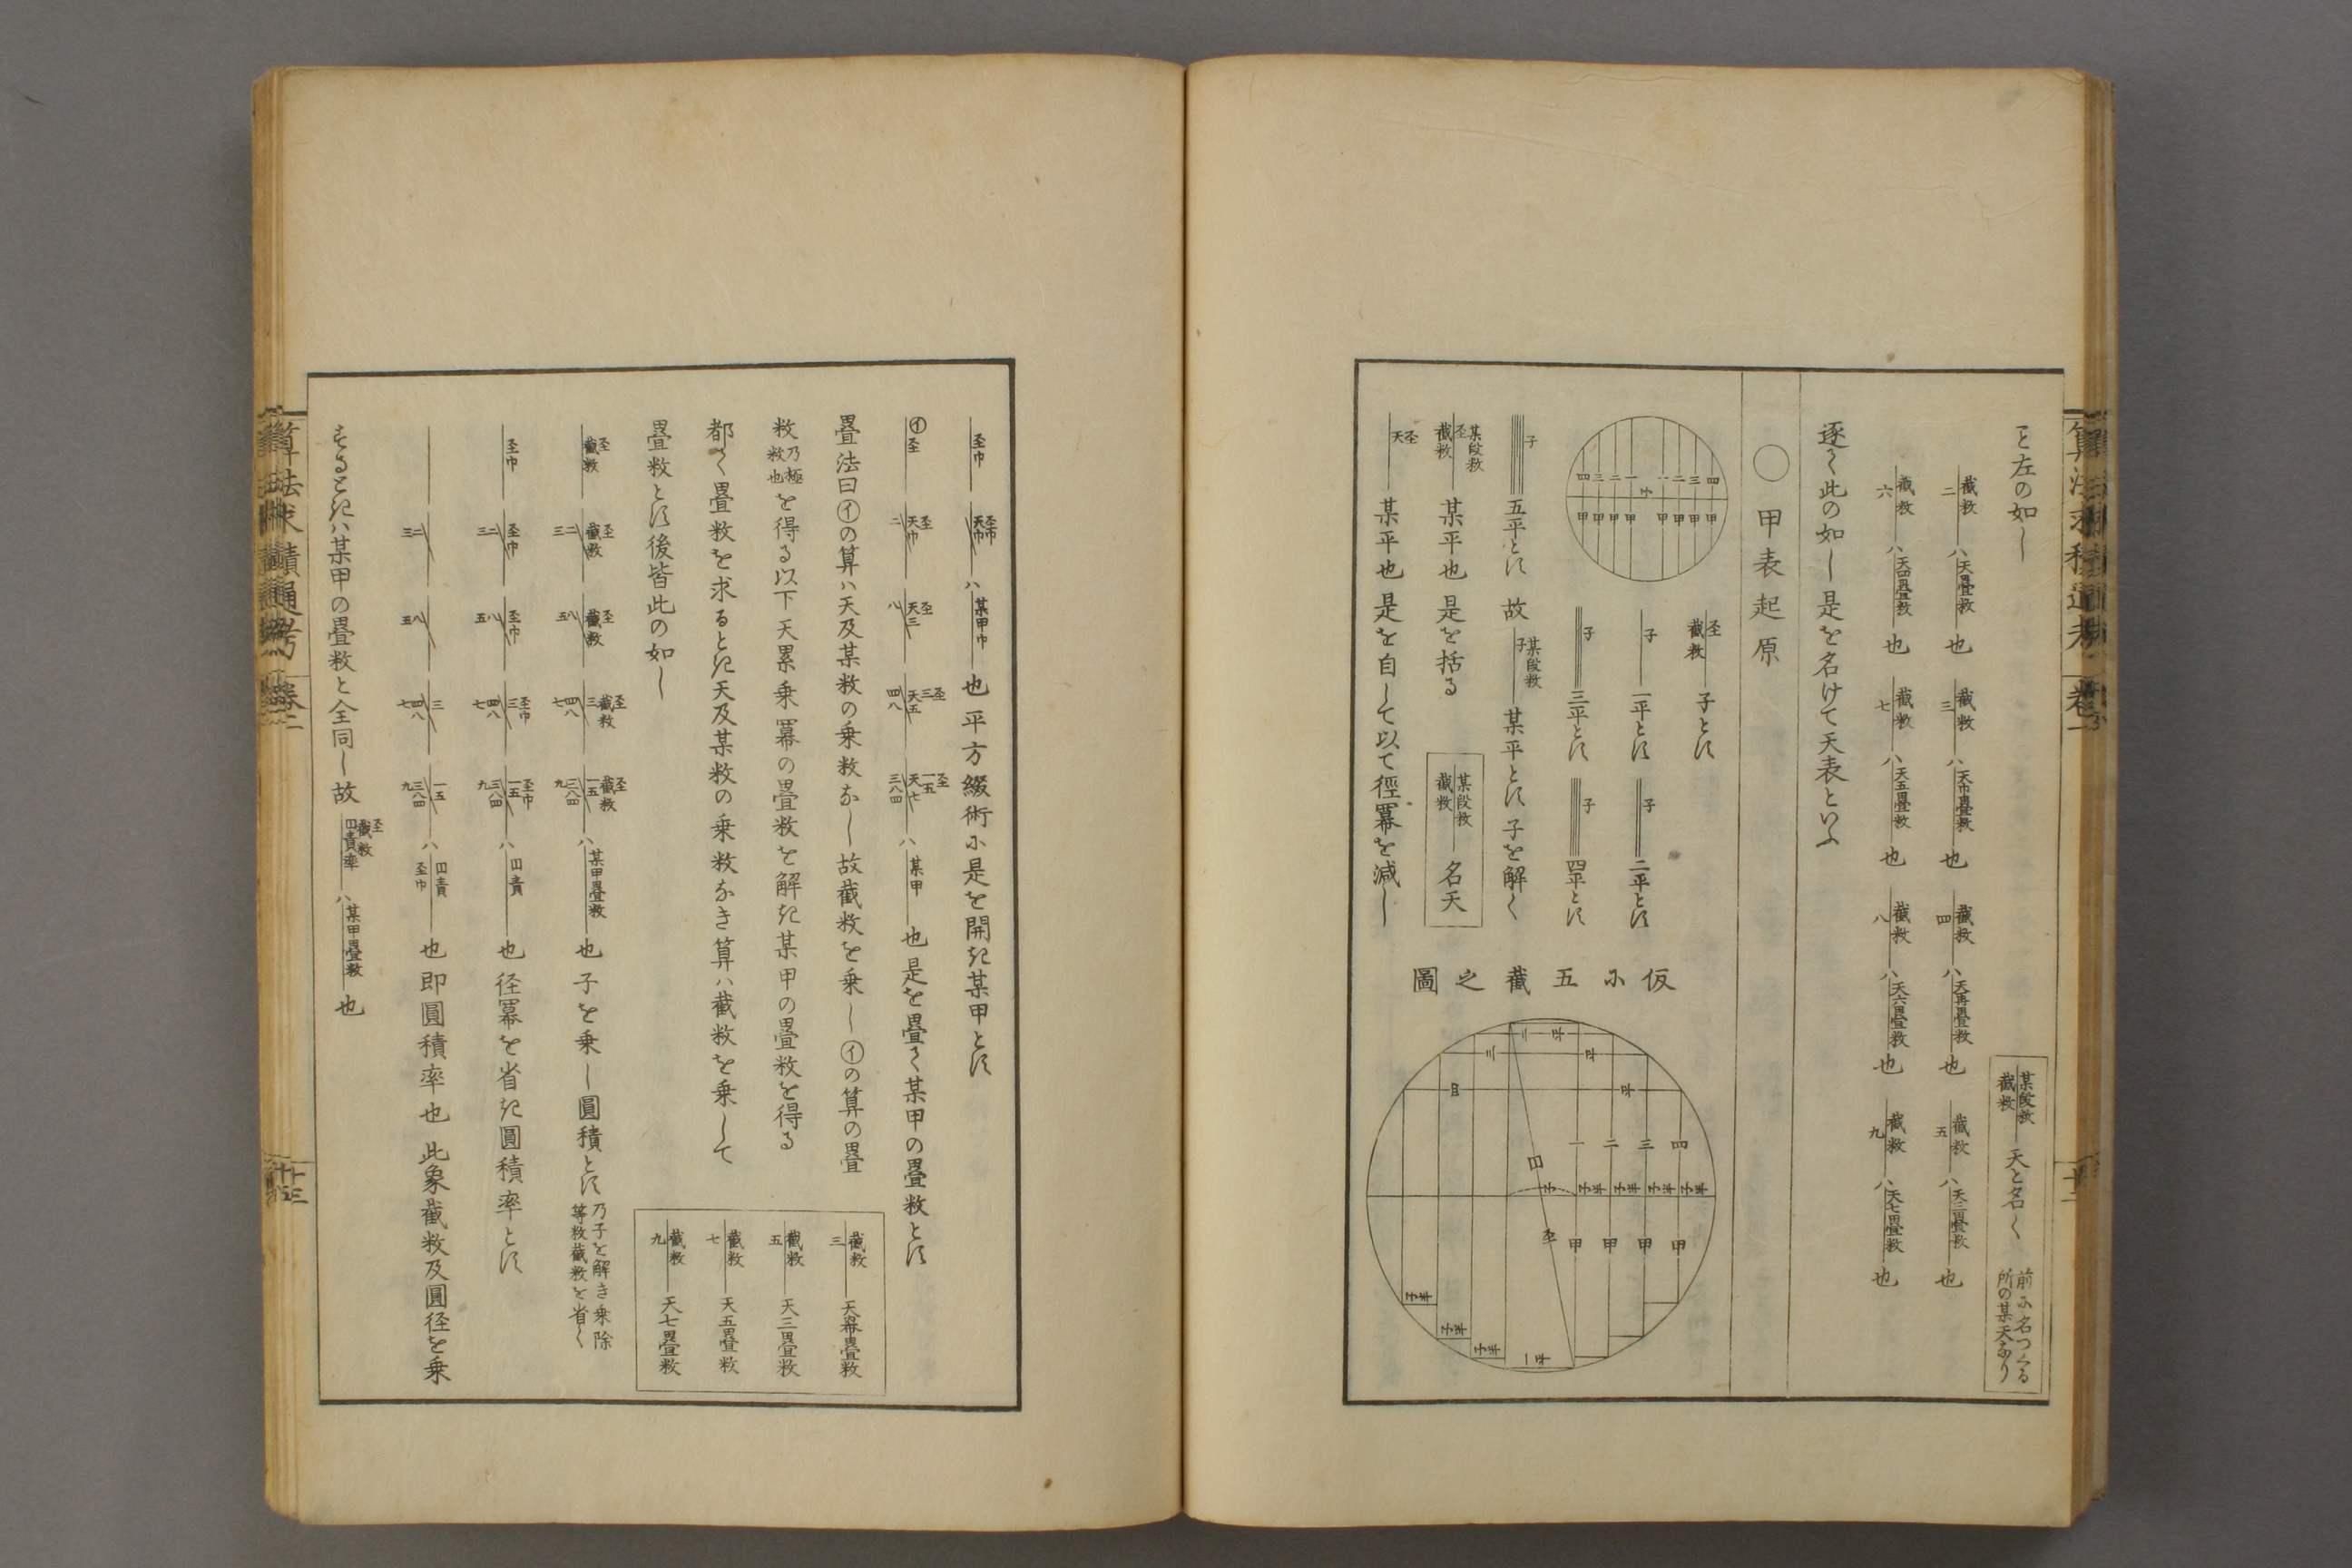 算法求積通考 卷二
て左の如し
某段数 截数 天と名く 前に名つくる所の某天なり
截数 二 ハ 天畳数 也 截数 三 ハ 天巾畳数 也 截数 四 ハ 天再畳数 也 截数 五 ハ 天三畳数 也
截数 六 ハ 天四畳数 也 截数 七 ハ 天五畳数 也 截数 八 ハ 天六畳数 也 截数 九 ハ 天七畳数 也
逐て此の如し是を名けて天表といふ
〇甲表起原
径 截数 子とす
子 一平とす 子 二平とす
子 三平とす 子 四平とす
四 三 二 一 子 一 二 三 四
甲 甲 甲 甲 甲 甲 甲 甲
子 五平とす 故 某段数 子 某平とす子を解く
某段数 径 截数 某平也是を括る
某段数 截数 名天
径 天 某平也是を自して以て徑冪を減し
仮に五截之圖
径巾 径巾 天巾 ハ 某甲巾 也平方綴術に是を開き某甲とす
㋑ 径 径 天巾 二 径 天三 八 径 三 天五 四八 径 一五 天七 三八四 ハ 某甲 也是を畳て某甲の畳数とす
畳法曰㋑の算ハ天及某数の乗数なし故截数を乗し㋑の算の畳
数 乃極数也 を得る以下天累乗冪の畳数を解き某甲の畳数を得る
都て畳数を求るとき天及某数の乗数なき算ハ截数を乗して
畳数とす後皆此の如し
截数 三 天冪畳数
截数 五 天三畳数
截数 七 天五畳数
截数 九 天七畳数
径 截数 径 截数 二三 径 截数 八五 径 截数 三 四八七 径 截数 一五 三八四九 ハ 某甲畳数 也子を乗し圓積とす 乃子を解き乗除等数截数を省く
径巾 径巾 二三 径巾 八五 径巾 三 四八七 径巾 一五 三八四九 ハ 円責 也径冪を省き圓積率とす
二三 八五 三 四八七 一五 三八四九 ハ 円責 径巾 也即圓積率也此象截数及圓径を乗
するときハ某甲の畳数と全同し故 径 截数 円責率 ハ 某甲畳数 也
算法求積通考 卷二 十三